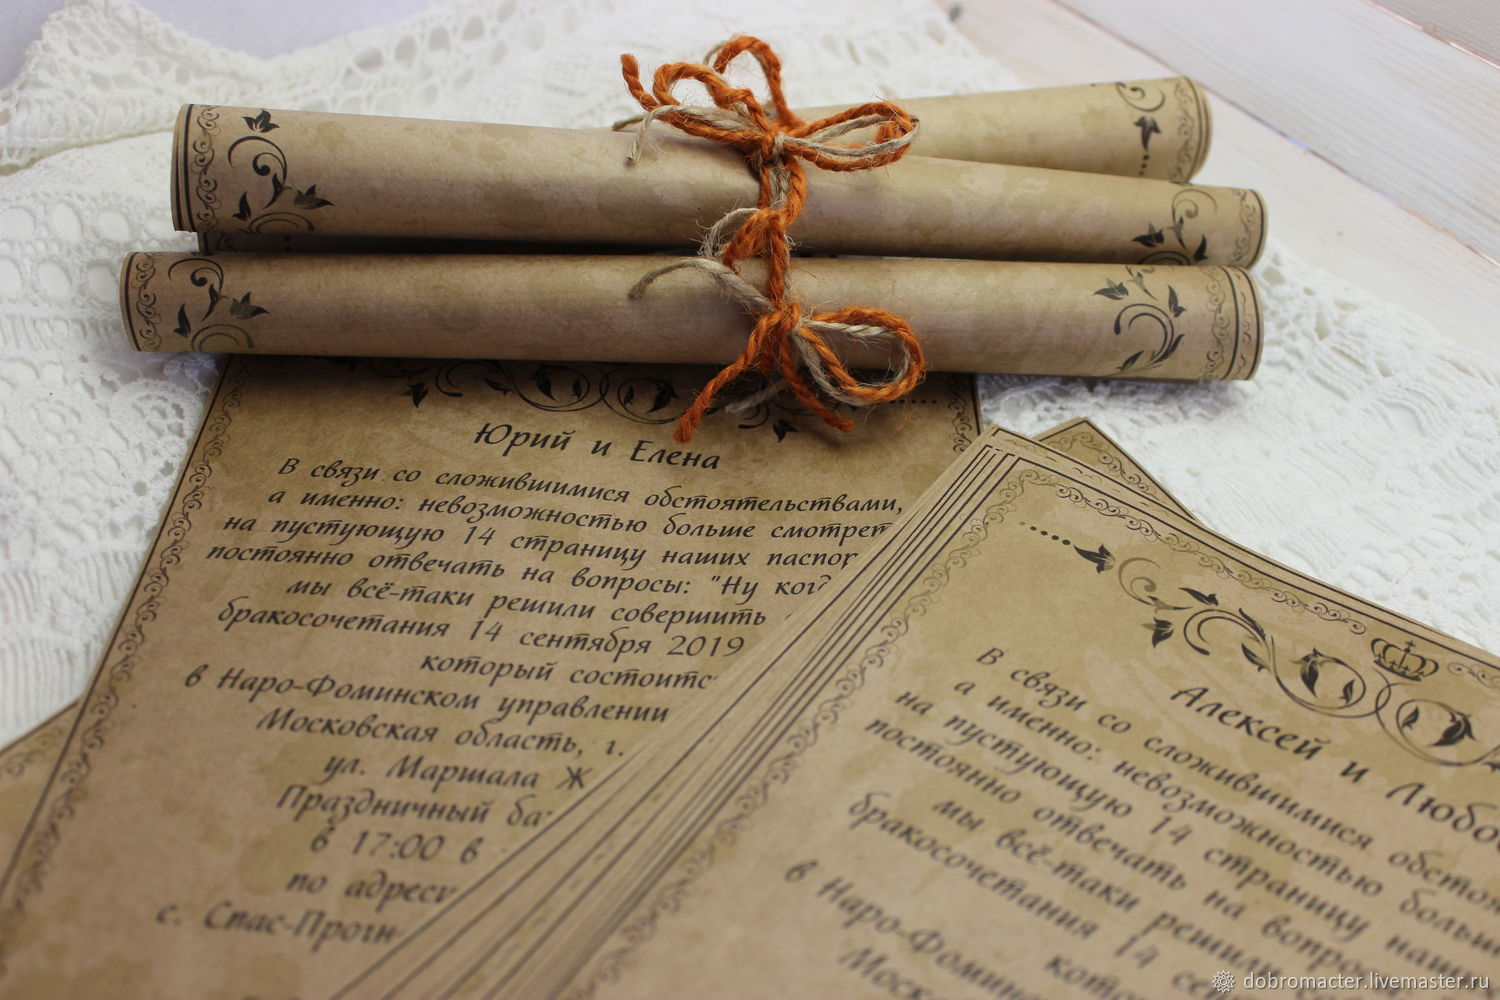 Юрий и Елена
В связи со сложившимися обстоятельствами,
а именно: невозможностью больше смотрет
на пустующую 14 страницу наших паспор
постоянно отвечать на вопросы: "Ну ког
мы всё-таки решили совершить
бракосочетания 14 сентября 2019
который состоитс
в Наро-Фоминском управлении
Московская область, г.
ул. Маршала Ж
Праздничный ба
в 17:00 в
по адресу
с. Спас-Прогн
Алексей и Любо
В связи со сложившимися обстоя
а именно: невозможностью больш
на пустующую 14 страницу наш
постоянно отвечать на вопро
мы всё-таки решил
бракосочетания 14 се
кото
в Наро-Фомин
Моск
dobromacter.livemaster.ru